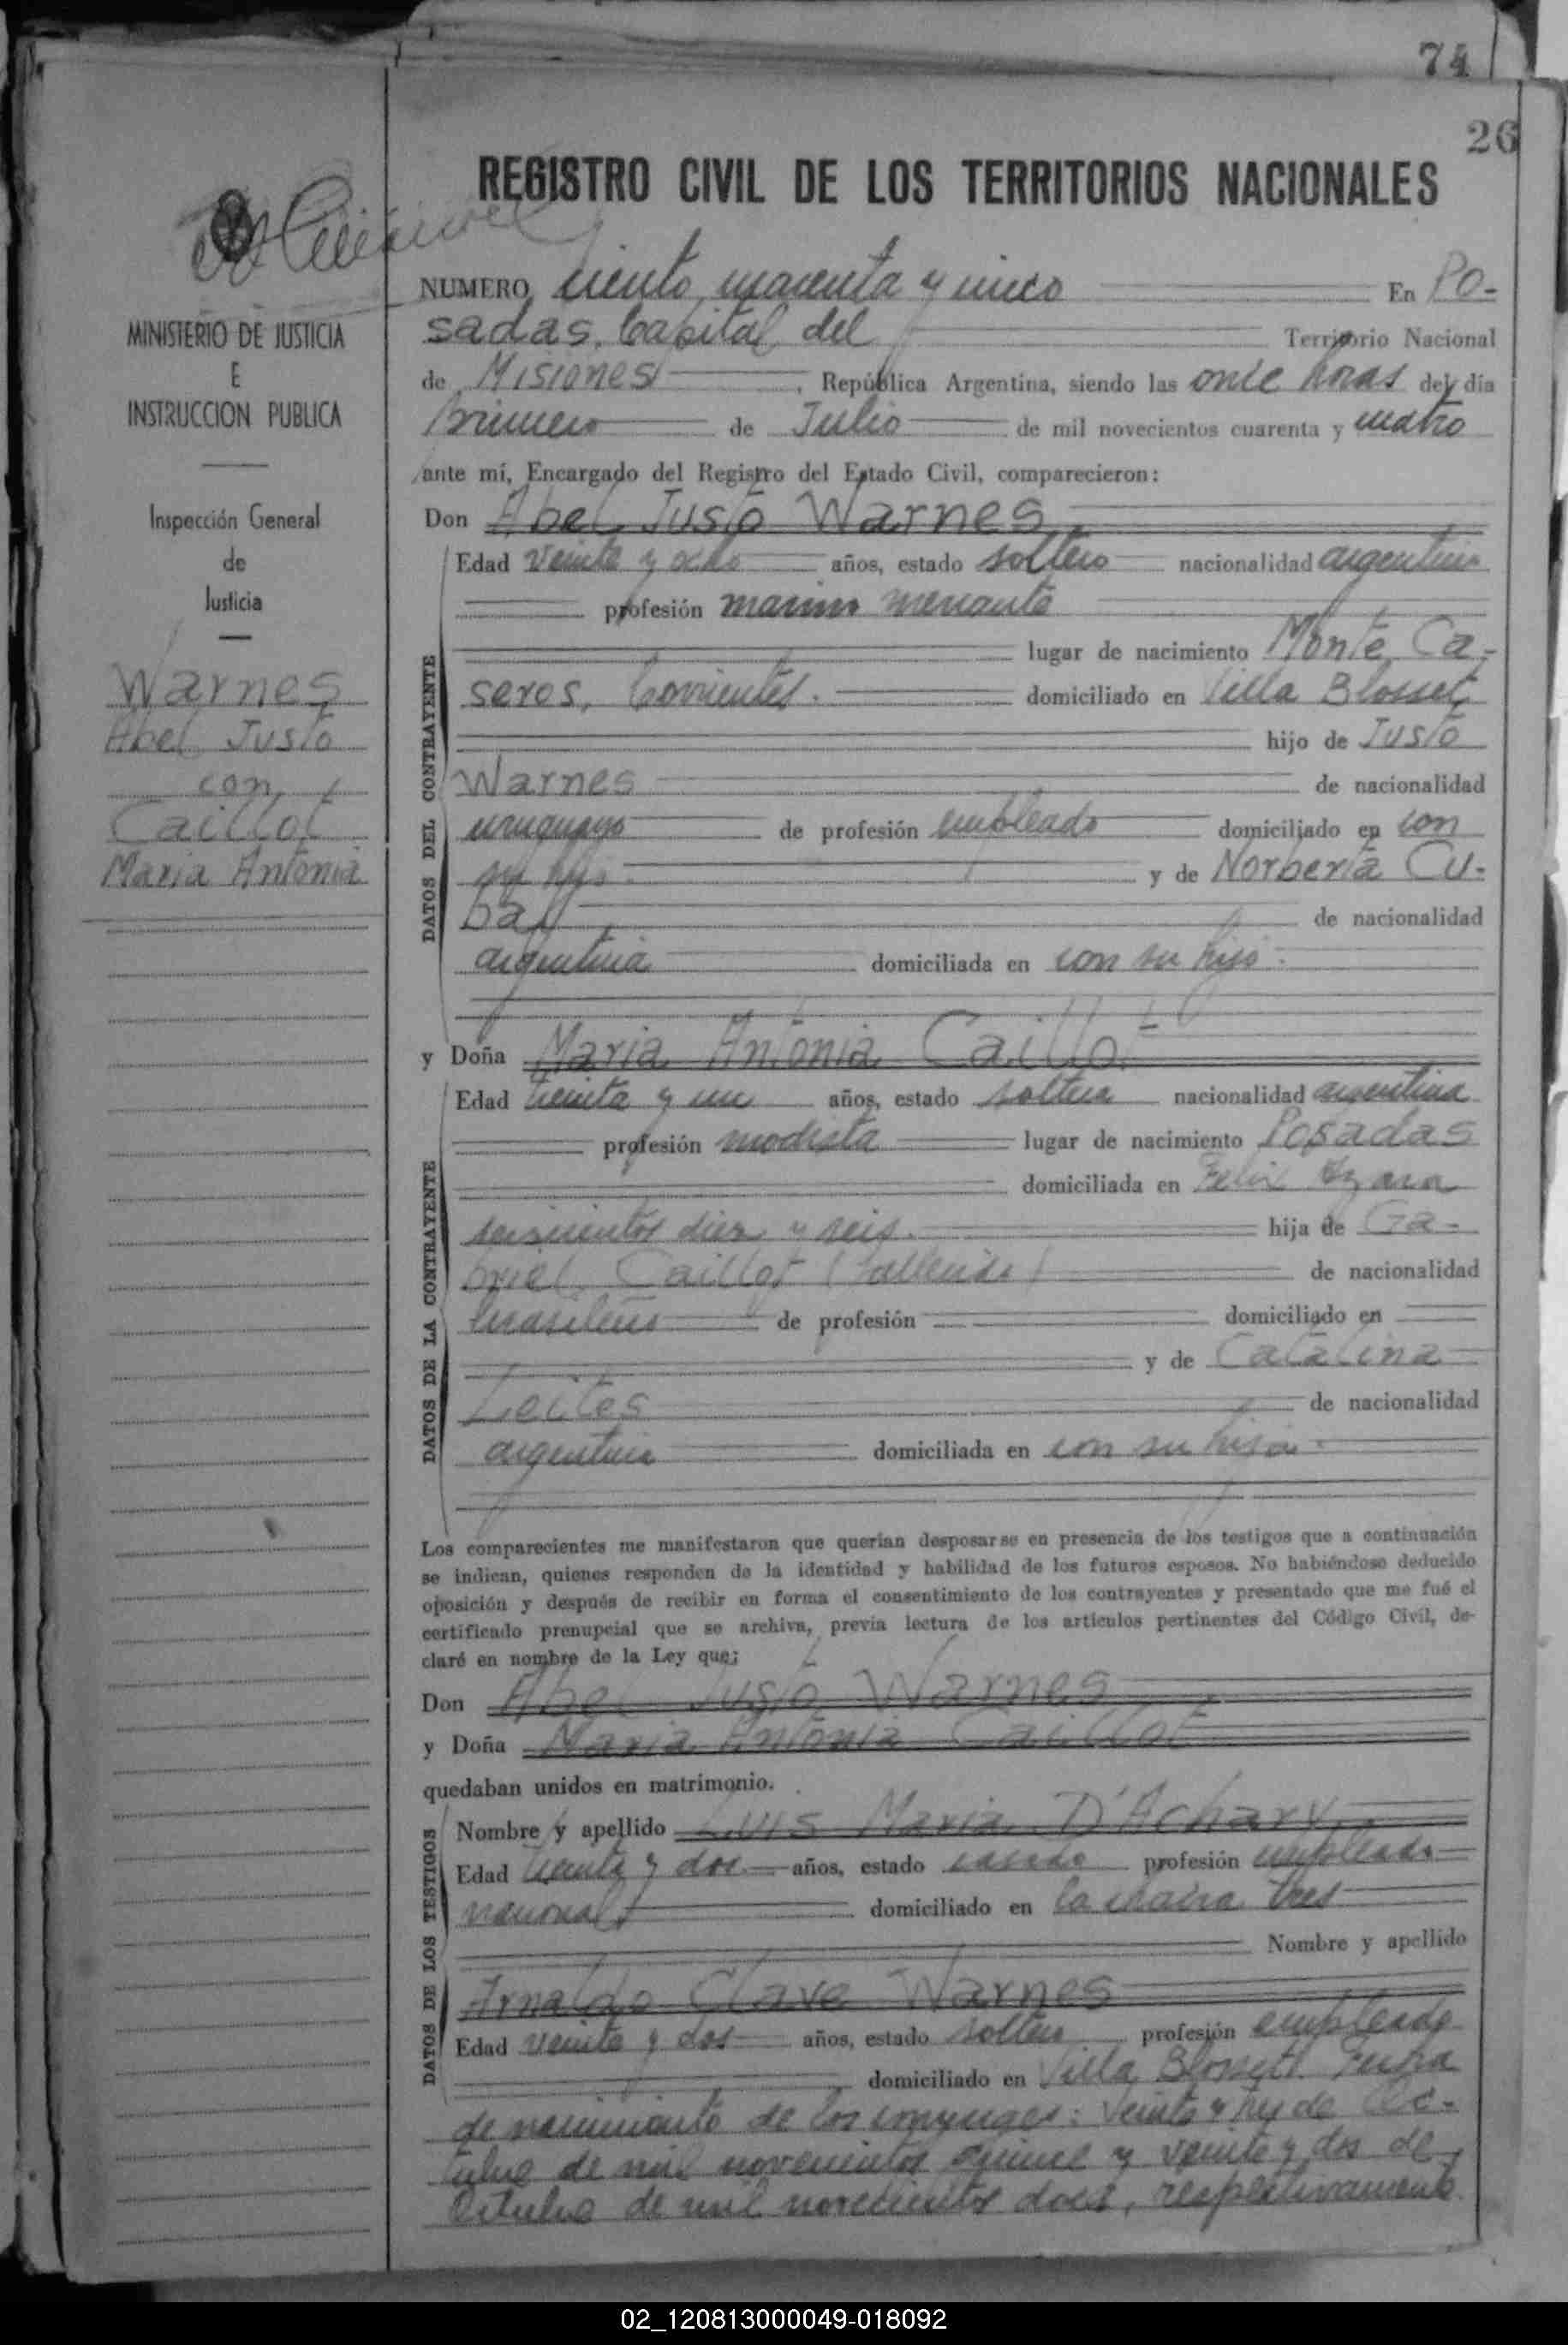 74
26
REGISTRO CIVIL DE LOS TERRITORIOS NACIONALES
MINISTERIO DE JUSTICIA
E
INSTRUCCION PUBLICA
Inspección General
de
Justicia
Warnes
Abel Justo
con
Caillot
Maria Antonia
NUMERO ciento cuarenta y cinco En Po-
sadas, Capital del Territorio Nacional
de Misiones, República Argentina, siendo las once horas del día
primero de Julio de mil novecientos cuarenta y cuatro
ante mí, Encargado del Registro del Estado Civil, comparecieron:
Don Abel Justo Warnes
DATOS DEL CONTRAYENTE
Edad veinte y ocho años, estado soltero nacionalidad argentino
profesión marino mercante
lugar de nacimiento Monte Ca-
seros, Corrientes. domiciliado en Villa Blosset
hijo de Justo
Warnes de nacionalidad
uruguayo de profesión empleado domiciliado en con
su hijo. y de Norberta Cu-
bas de nacionalidad
argentina domiciliada en con su hijo.
y Doña Maria Antonia Caillot
DATOS DE LA CONTRAYENTE
Edad treinta y un años, estado soltera nacionalidad argentina
profesión modista lugar de nacimiento Posadas
domiciliada en Felix Azara
seiscientos diez y seis. hija de Ga-
briel Caillot (fallecido) de nacionalidad
brasileño de profesión domiciliado en
y de Catalina
Leites de nacionalidad
argentina domiciliada en con su hija.
Los comparecientes me manifestaron que querían desposarse en presencia de los testigos que a continuación
se indican, quienes responden de la identidad y habilidad de los futuros esposos. No habiéndose deducido
oposición y después de recibir en forma el consentimiento de los contrayentes y presentado que me fué el
certificado prenupcial que se archiva, previa lectura de los artículos pertinentes del Código Civil, de-
claré en nombre de la Ley que;
Don Abel Justo Warnes
y Doña Maria Antonia Caillot
quedaban unidos en matrimonio.
DATOS DE LOS TESTIGOS
Nombre y apellido Luis Maria D'Achary
Edad treinta y dos años, estado casado profesión empleado
nacional domiciliado en la chacra tres
Nombre y apellido
Arnaldo Clave Warnes
Edad veinte y dos años, estado soltero profesión empleado
domiciliado en Villa Blosset. Fecha
de nacimiento de los conyuges: veinte y de Oc-
tubre de mil novecientos quince y veinte y dos de
Octubre de mil novecientos doce, respectivamente.
02_120813000049-018092